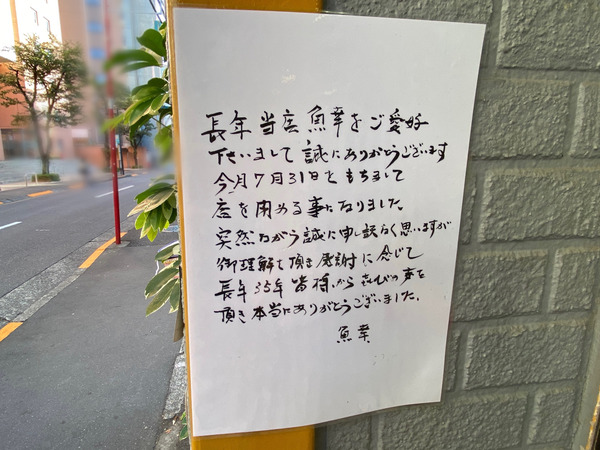 長年当店魚幸をご愛好
下さいまして誠にありがとうございます
今月7月31日をもちまして
店を閉める事になりました。
突然ながら誠に申し訳なく思いますが
御理解して頂き感謝に念じて
長年35年皆様から喜びの声を
頂き本当にありがとうございました。
魚幸